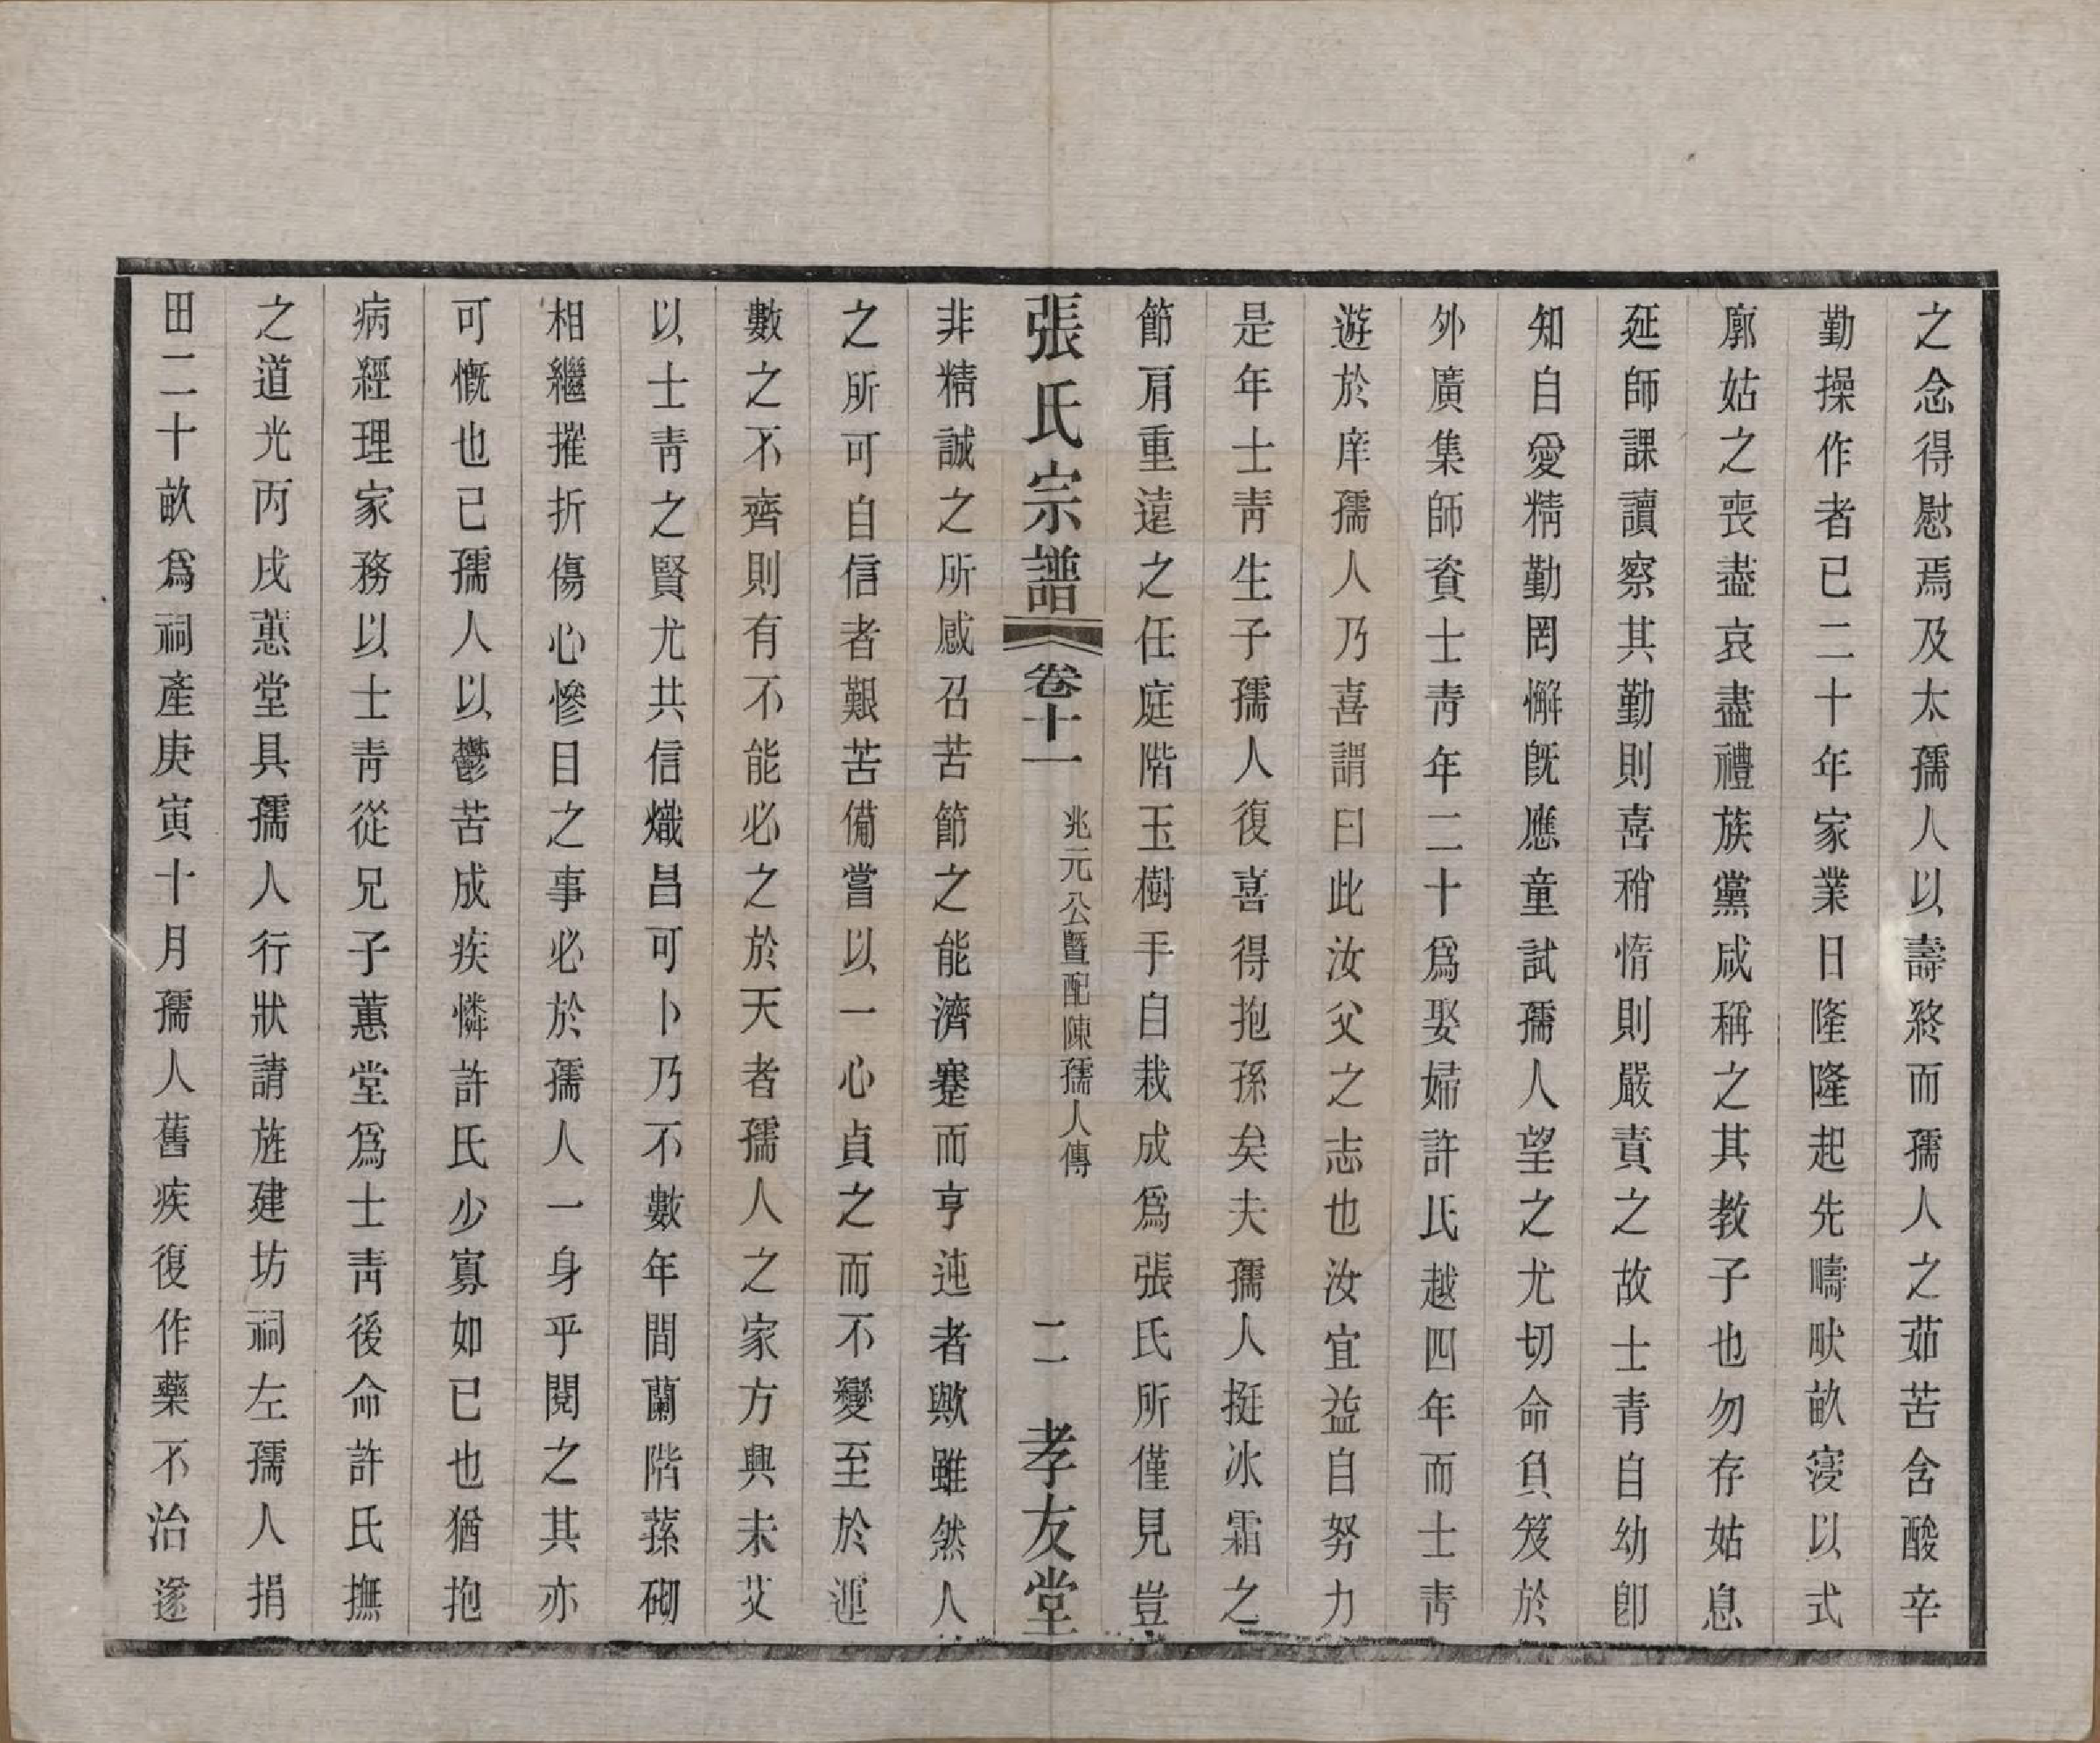 之念得慰焉及太孺人以壽終而孺人之茹苦含酸辛
勤操作者已二十年家業日隆隆起先疇畎畝寖以式
廓姑之喪盡哀盡禮族黨咸稱之其教子也勿存姑息
延師課讀察其勤則喜稍惰則嚴責之故士青自幼卽
知自愛精勤罔懈旣應童試孺人望之尤切命負笈於
外廣集師資士靑年二十爲娶婦許氏越四年而士靑
遊於庠孺人乃喜謂曰此汝父之志也汝宜益自努力
是年士靑生子孺人復喜得抱孫矣夫孺人挺冰霜之
節肩重遠之任庭階玉樹手自栽成爲張氏所僅見豈
張氏宗譜 卷十一 兆元公暨配陳孺人傳 二 孝友堂
非精誠之所感召苦節之能濟蹇而亨迍者歟雖然人
之所可自信者艱苦備嘗以一心貞之而不變至於運
數之不齊則有不能必之於天者孺人之家方興未艾
以士靑之賢尤共信熾昌可卜乃不數年間蘭階蓀砌
相繼摧折傷心慘目之事必於孺人一身乎閱之其亦
可慨也已孺人以鬱苦成疾憐許氏少寡如已也猶抱
病經理家務以士靑從兄子蕙堂爲士靑後命許氏撫
之道光丙戌蕙堂具孺人行狀請旌建坊祠左孺人捐
田二十畝爲祠產庚寅十月孺人舊疾復作藥不治遂